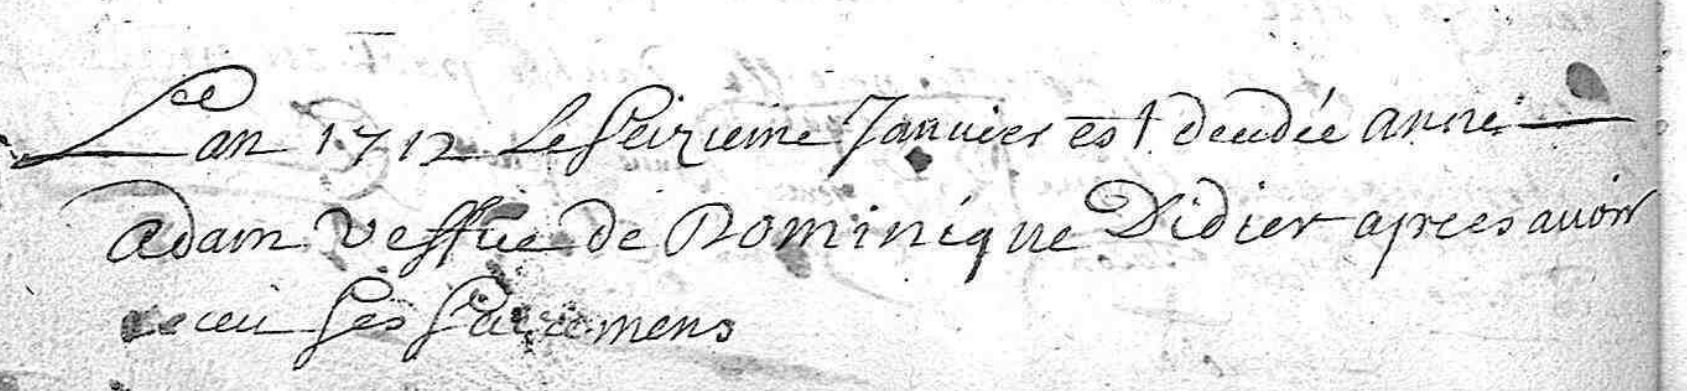 Lan 1712 le Seizieme Januier est decedée anne
adam veffue de Dominique Didier aprees auoir
receu Ses Sacremens